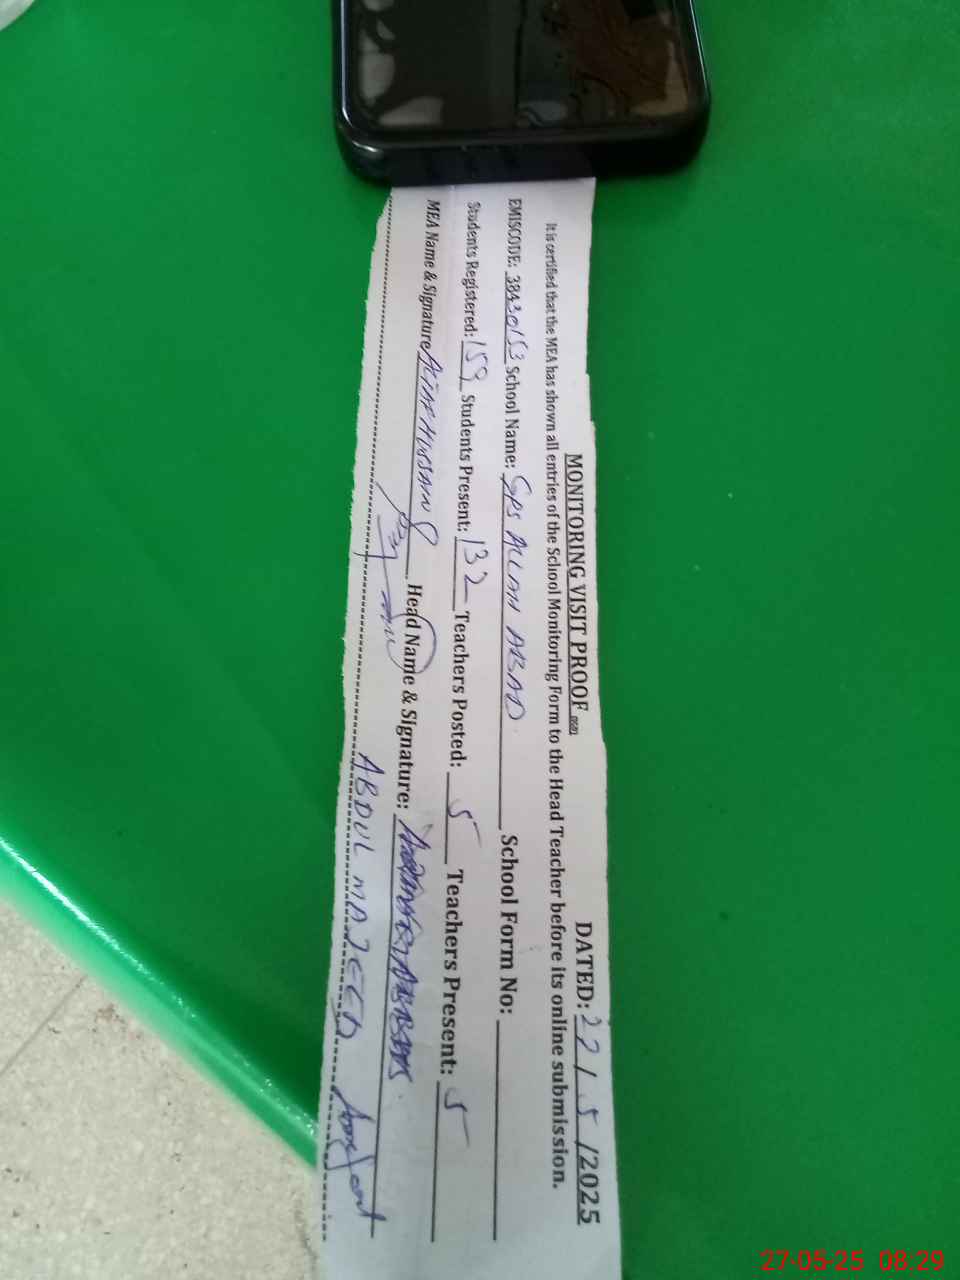 MONITORING VISIT PROOF DATED: 27/5/2025
It is certified that the MEA has shown all entries of the School Monitoring Form to the Head Teacher before its online submission.
EMISCODE: 38430153 School Name: GPS ALLAH ABAD School Form No:
Students Registered: 159 Students Present: 132 Teachers Posted: 5 Teachers Present: 5
MEA Name & Signature Head Name & Signature:
ABDUL MAJEED
27-05-25 08:29